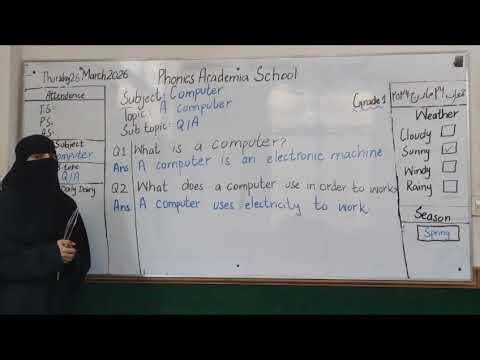 Thursday 26 March 2026
Phonics Arademia School
Attendence
T.S:
P.S:
A.S:
Subject
Computer
Q1A
Daily Dairy
Subject: Computer
Topic: A computer
Sub topic: Q1A
Grade 1
Q1 What is a computer?
Ans A computer is an electronic machine
Q2 What does a computer use in order to work?
Ans A computer uses electricity to work.
Weather
Cloudy
Sunny ✓
Windy
Rainy
Season
Spring